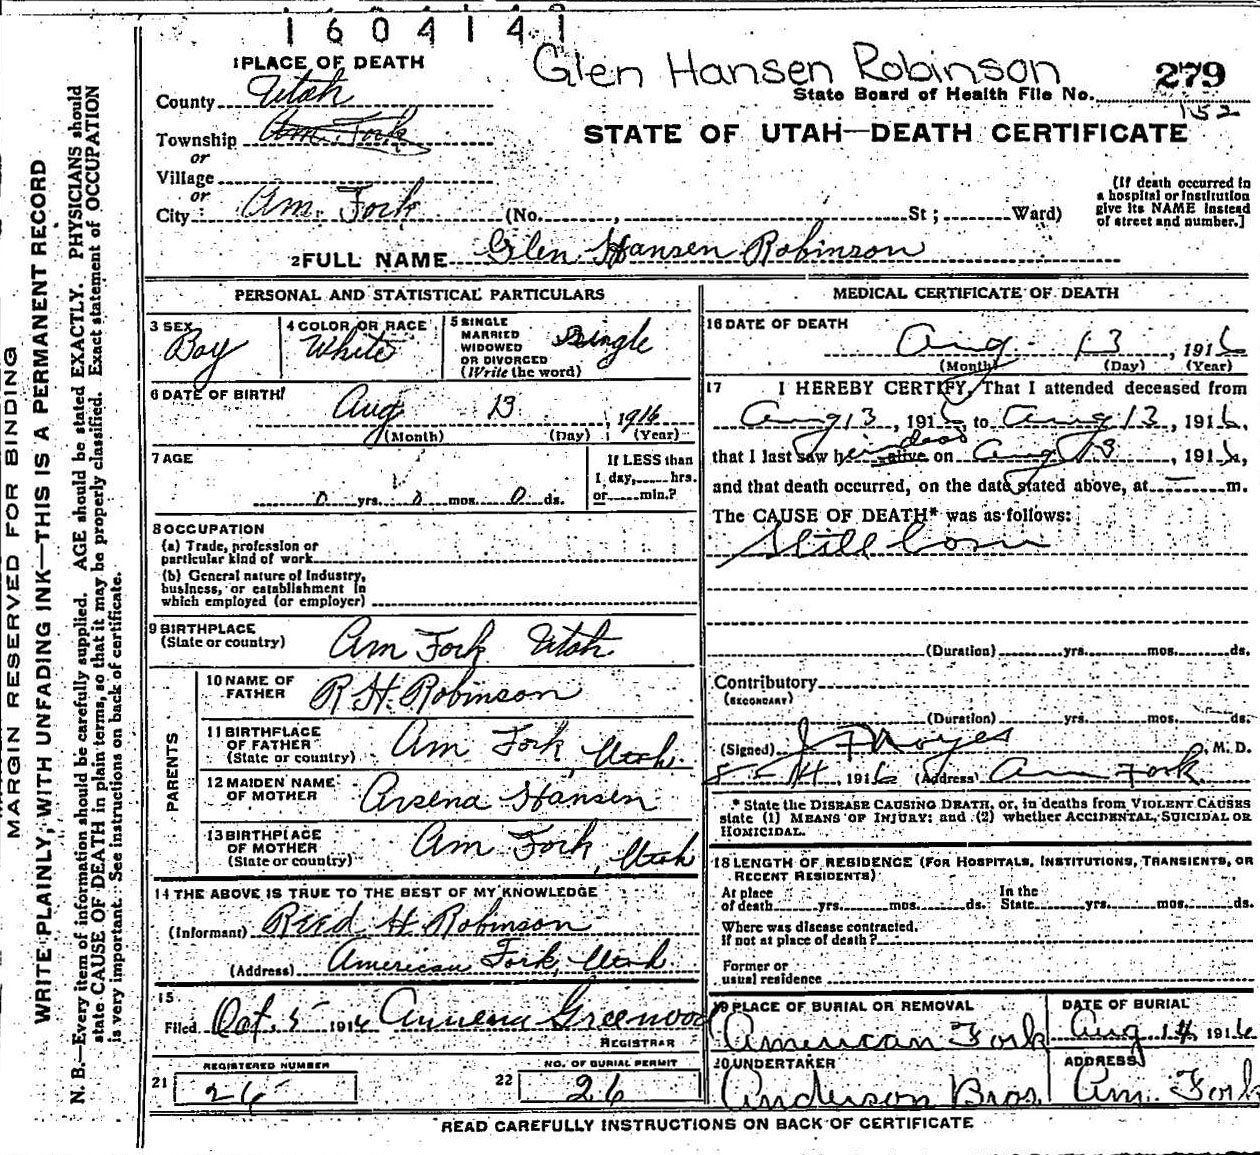 1604141
1 PLACE OF DEATH
Glen Hansen Robinson
279
County Utah
State Board of Health File No.
152
Township Am. Fork
STATE OF UTAH—DEATH CERTIFICATE
or
Village
or
City Am. Fork (No. , St ; Ward)
(If death occurred in
a hospital or institution
give its NAME instead
of street and number.]
2 FULL NAME Glen Hansen Robinson
PERSONAL AND STATISTICAL PARTICULARS
3 SEX
Boy
4 COLOR OR RACE
White
5 SINGLE
MARRIED
WIDOWED
OR DIVORCED
(Write the word)
Single
6 DATE OF BIRTH
Aug 13, 1916
(Month) (Day) (Year)
7 AGE
0 yrs. 0 mos. 0 ds.
If LESS than
1 day, hrs.
or min.?
8 OCCUPATION
(a) Trade, profession or
particular kind of work
(b) General nature of Industry,
business, or establishment in
which employed (or employer)
9 BIRTHPLACE
(State or country)
Am Fork Utah
PARENTS
10 NAME OF
FATHER
R H. Robinson
11 BIRTHPLACE
OF FATHER
(State or country)
Am Fork, Utah
12 MAIDEN NAME
OF MOTHER
Arsena Hansen
13 BIRTHPLACE
OF MOTHER
(State or country)
Am Fork, Utah
14 THE ABOVE IS TRUE TO THE BEST OF MY KNOWLEDGE
(Informant) Reed H. Robinson
(Address) American Fork, Utah
15
Filed Oct. 5 1916 Annena Greenwood
REGISTRAR
REGISTERED NUMBER
21 26
NO. OF BURIAL PERMIT
22 26
MEDICAL CERTIFICATE OF DEATH
16 DATE OF DEATH
Aug 13, 1916
(Month) (Day) (Year)
17 I HEREBY CERTIFY, That I attended deceased from
Aug 13, 1916 to Aug 13, 1916,
dead
that I last saw him alive on Aug 13, 1916,
and that death occurred, on the date stated above, at m.
The CAUSE OF DEATH* was as follows:
Still born
(Duration) yrs. mos. ds.
Contributory
(SECONDARY)
(Duration) yrs. mos. ds.
(Signed) J F Noyes, M. D.
8-14, 1916 (Address) Am Fork
* State the DISEASE CAUSING DEATH, or, in deaths from VIOLENT CAUSES
state (1) MEANS OF INJURY; and (2) whether ACCIDENTAL, SUICIDAL OR
HOMICIDAL.
18 LENGTH OF RESIDENCE (FOR HOSPITALS, INSTITUTIONS, TRANSIENTS, OR
RECENT RESIDENTS)
At place
of death yrs. mos. ds.
In the
State yrs. mos. ds.
Where was disease contracted,
if not at place of death?
Former or
usual residence
19 PLACE OF BURIAL OR REMOVAL
American Fork
DATE OF BURIAL
Aug 14, 1916
20 UNDERTAKER
Anderson Bros.
ADDRESS
Am. Fork
READ CAREFULLY INSTRUCTIONS ON BACK OF CERTIFICATE
MARGIN RESERVED FOR BINDING
WRITE PLAINLY, WITH UNFADING INK—THIS IS A PERMANENT RECORD
N. B.—Every item of information should be carefully supplied. AGE should be stated EXACTLY. PHYSICIANS should
state CAUSE OF DEATH in plain terms, so that it may be properly classified. Exact statement of OCCUPATION
is very important. See instructions on back of certificate.